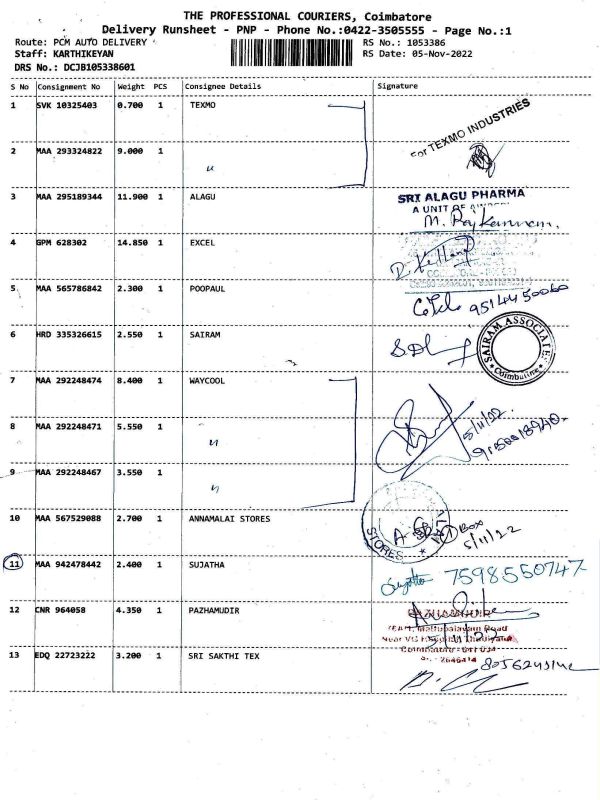 THE PROFESSIONAL COURIERS, Coimbatore
Delivery Runsheet - PNP - Phone No.:0422-3505555 - Page No.:1
Route: PCM AUTO DELIVERY RS No.: 1053386
Staff: KARTHIKEYAN RS Date: 05-Nov-2022
DRS No.: DCJB105338601
S No Consignment No Weight PCS Consignee Details Signature
1 SVK 10325403 0.700 1 TEXMO
For TEXMO INDUSTRIES
2 MAA 293324822 9.000 1 "
3 MAA 295189344 11.900 1 ALAGU
SRI ALAGU PHARMA
A UNIT OF
4 GPM 628302 14.850 1 EXCEL
5 MAA 565786842 2.300 1 POOPAUL
9514450060
6 HRD 335326615 2.550 1 SAIRAM
SAIRAM ASSOCIATE
Coimbatore
7 MAA 292248474 8.400 1 WAYCOOL
8 MAA 292248471 5.550 1 "
5/11/22
9 MAA 292248467 3.550 1 "
10 MAA 567529088 2.700 1 ANNAMALAI STORES
STORES
1 Box
5/11/22
11 MAA 942478442 2.400 1 SUJATHA
Sujatha 7598550747
12 CNR 964058 4.350 1 PAZHAMUDIR
Road
Coimbatore - 641 034
2646414
13 EDQ 22723222 3.200 1 SRI SAKTHI TEX